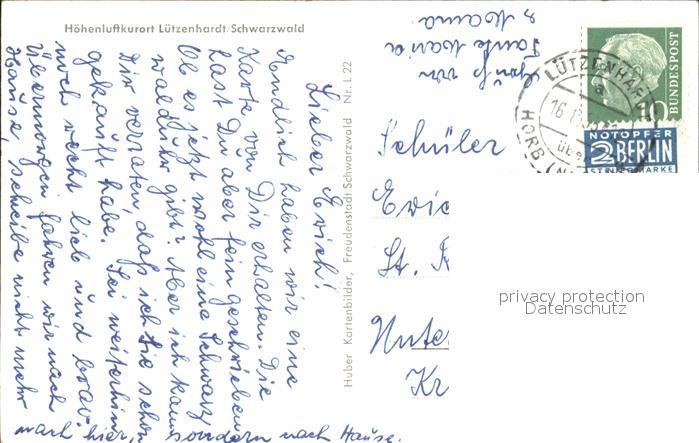 Höhenluftkurort Lützenhardt/Schwarzwald
Lieber Erich!
Endlich haben wir eine
Karte von Dir erhalten. Die
hast Du aber fein geschrieben.
Ob es jetzt wohl eine Schwarz
walduhr gibt? Aber ich kann
Dir verraten, daß ich sie schon
gekauft habe. Sei weiterhin
noch recht lieb und brav.
Übermorgen fahren wir nach
Hause, schreibe nicht mehr
nach hier, sondern nach Hause.
Gruß von
Tante Maria
u. Mama
Huber Kartenbilder, Freudenstadt Schwarzwald Nr. L 22
Schüler
Eric
St.
Unte
Kr
BUNDESPOST
10
LÜTZENHAR
a
16.
über
HORB (N
NOTOPFER
2 BERLIN
STEUERMARKE
privacy protection
Datenschutz